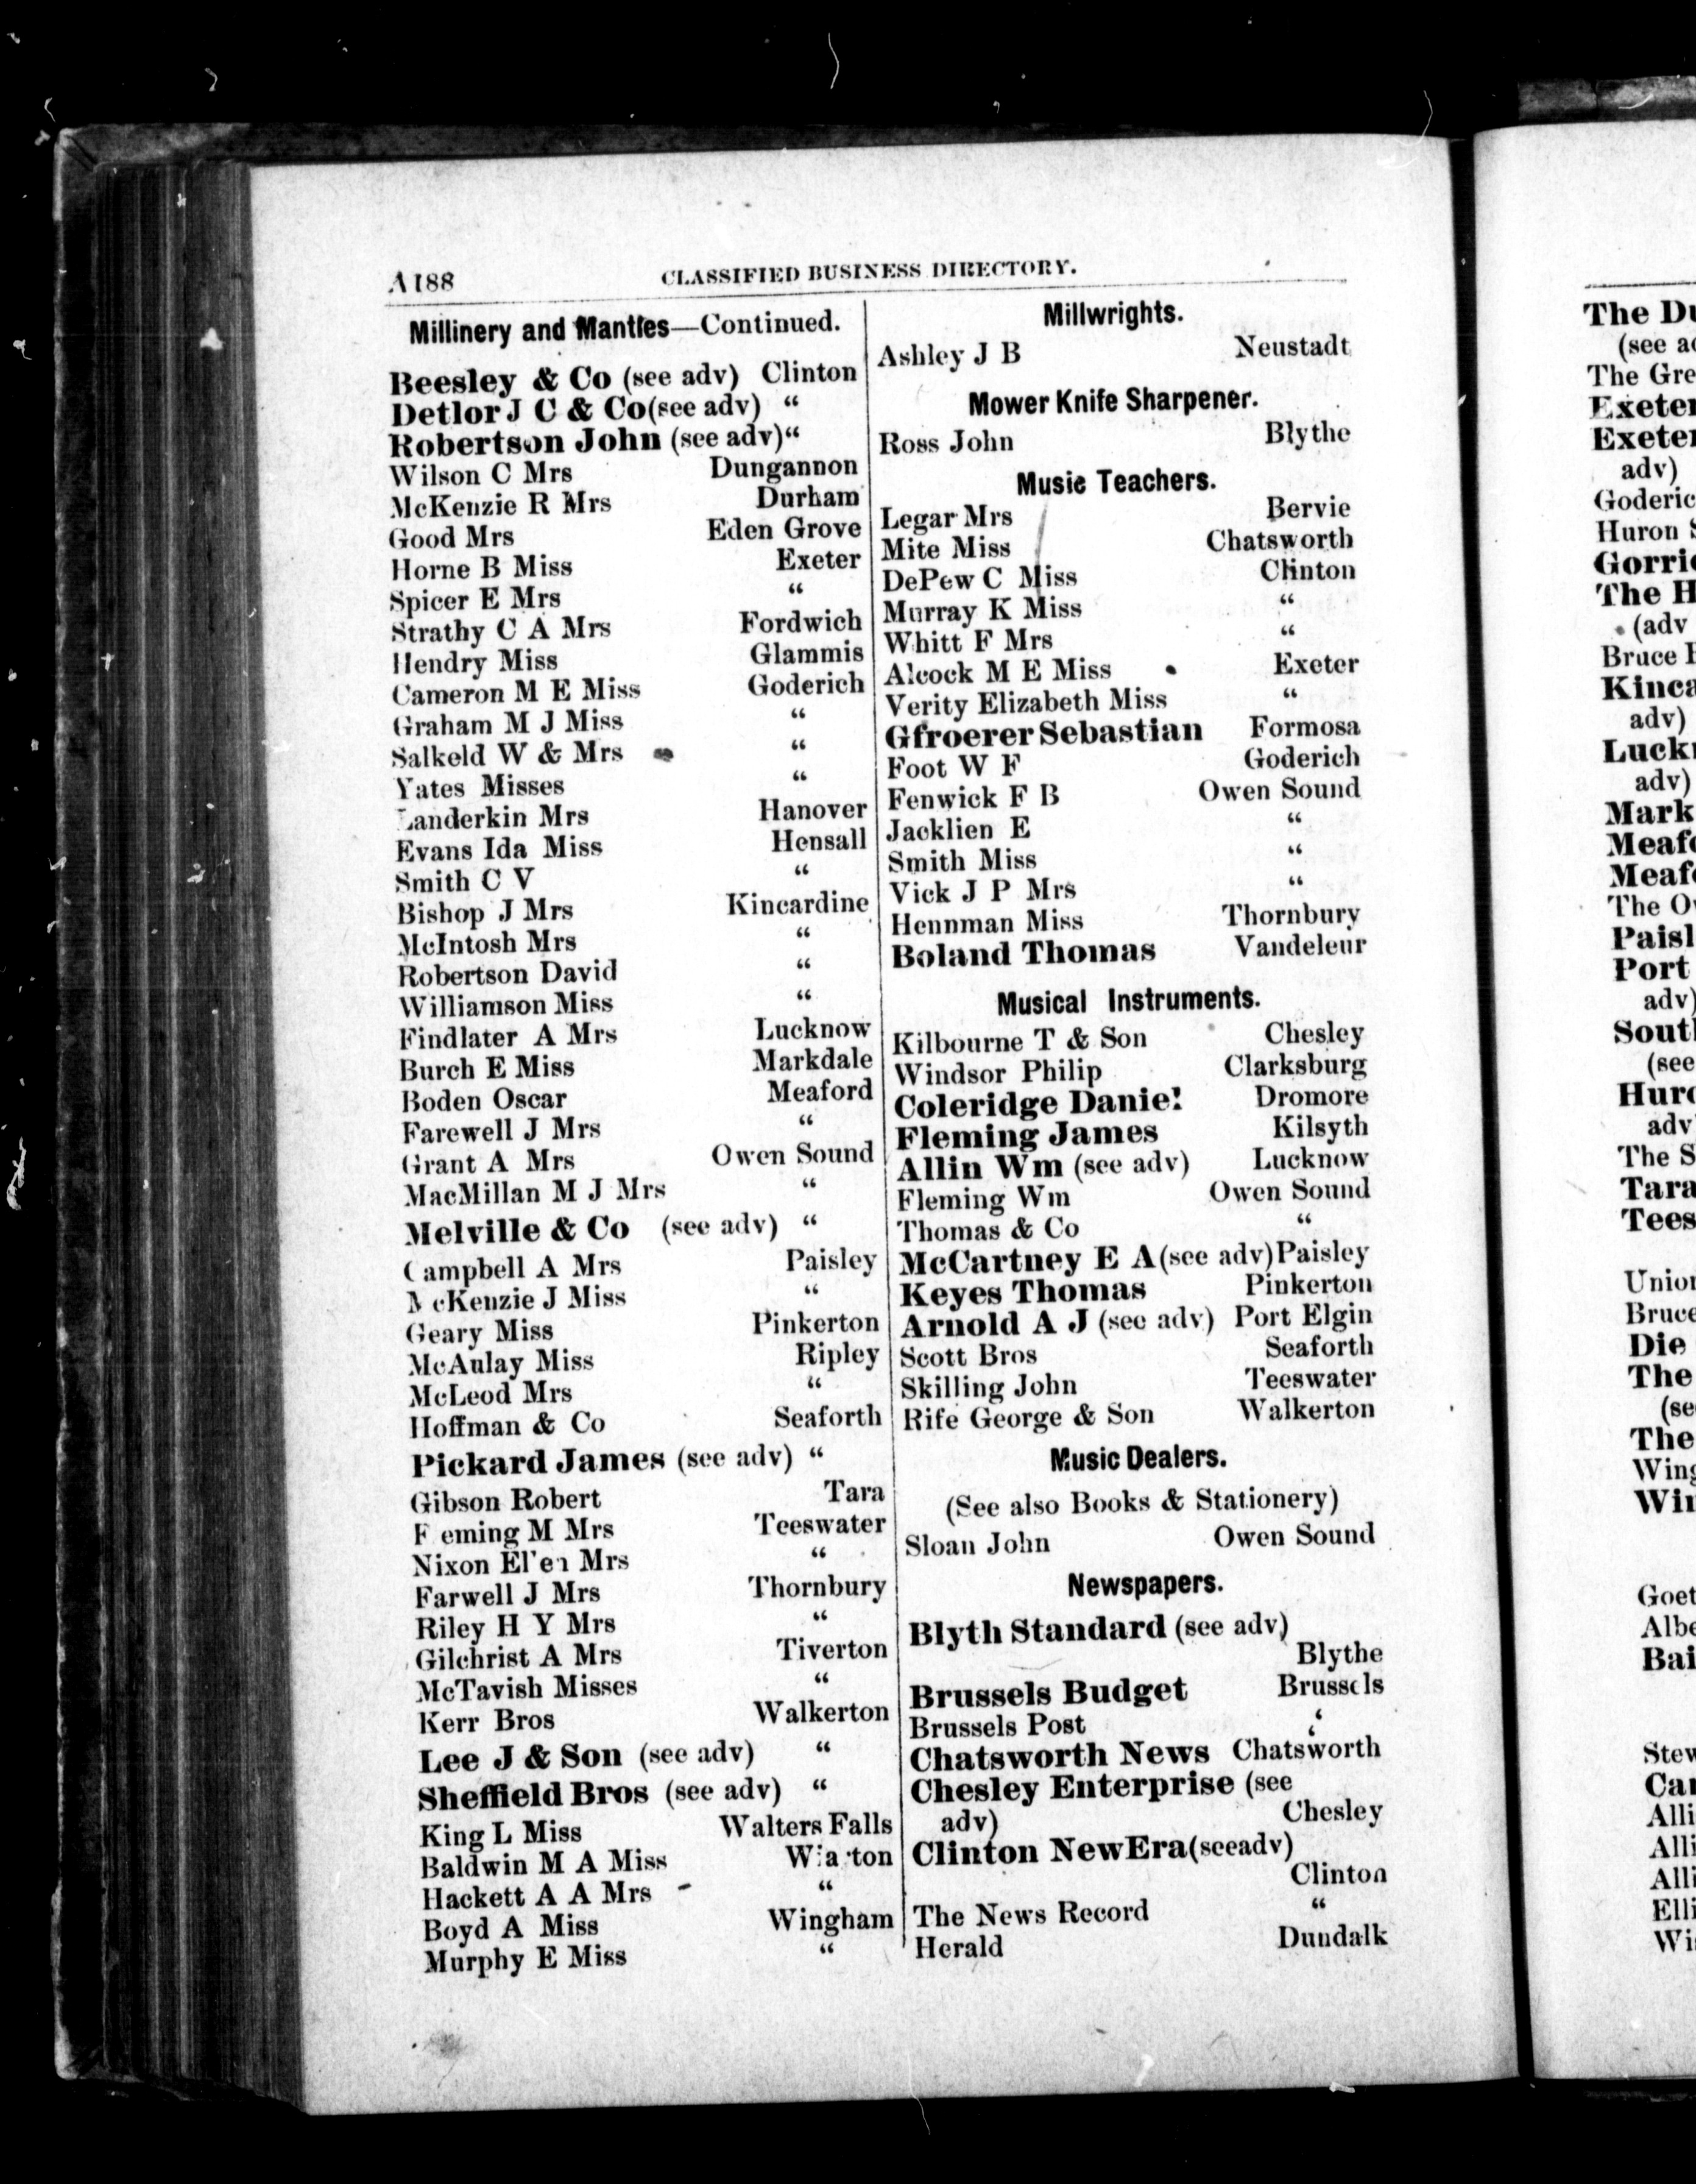 A188 CLASSIFIED BUSINESS DIRECTORY.
Millinery and Mantles—Continued.
Beesley & Co (see adv) Clinton
Detlor J C & Co(see adv) “
Robertson John (see adv)“
Wilson C Mrs Dungannon
McKenzie R Mrs Durham
Good Mrs Eden Grove
Horne B Miss Exeter
Spicer E Mrs “
Strathy C A Mrs Fordwich
Hendry Miss Glammis
Cameron M E Miss Goderich
Graham M J Miss “
Salkeld W & Mrs “
Yates Misses “
Landerkin Mrs Hanover
Evans Ida Miss Hensall
Smith C V “
Bishop J Mrs Kincardine
McIntosh Mrs “
Robertson David “
Williamson Miss “
Findlater A Mrs Lucknow
Burch E Miss Markdale
Boden Oscar Meaford
Farewell J Mrs “
Grant A Mrs Owen Sound
MacMillan M J Mrs “
Melville & Co (see adv) “
Campbell A Mrs Paisley
McKenzie J Miss “
Geary Miss Pinkerton
McAulay Miss Ripley
McLeod Mrs “
Hoffman & Co Seaforth
Pickard James (see adv) “
Gibson Robert Tara
F eming M Mrs Teeswater
Nixon Ellen Mrs “
Farwell J Mrs Thornbury
Riley H Y Mrs “
Gilchrist A Mrs Tiverton
McTavish Misses “
Kerr Bros Walkerton
Lee J & Son (see adv) “
Sheffield Bros (see adv) “
King L Miss Walters Falls
Baldwin M A Miss Wiarton
Hackett A A Mrs “
Boyd A Miss Wingham
Murphy E Miss “
Millwrights.
Ashley J B Neustadt
Mower Knife Sharpener.
Ross John Blythe
Music Teachers.
Legar Mrs Bervie
Mite Miss Chatsworth
DePew C Miss Clinton
Murray K Miss “
Whitt F Mrs “
Alcock M E Miss Exeter
Verity Elizabeth Miss “
Gfroerer Sebastian Formosa
Foot W F Goderich
Fenwick F B Owen Sound
Jacklien E “
Smith Miss “
Vick J P Mrs “
Hennman Miss Thornbury
Boland Thomas Vandeleur
Musical Instruments.
Kilbourne T & Son Chesley
Windsor Philip Clarksburg
Coleridge Daniel Dromore
Fleming James Kilsyth
Allin Wm (see adv) Lucknow
Fleming Wm Owen Sound
Thomas & Co “
McCartney E A(see adv)Paisley
Keyes Thomas Pinkerton
Arnold A J (see adv) Port Elgin
Scott Bros Seaforth
Skilling John Teeswater
Rife George & Son Walkerton
Music Dealers.
(See also Books & Stationery)
Sloan John Owen Sound
Newspapers.
Blyth Standard (see adv)
Blythe
Brussels Budget Brussels
Brussels Post “
Chatsworth News Chatsworth
Chesley Enterprise (see
adv) Chesley
Clinton NewEra(seeadv)
Clinton
The News Record “
Herald Dundalk
The
(see
The Gre
Exeter
Exeter
adv)
Goderic
Huron
Gorrie
The H
(adv
Bruce
Kinca
adv)
Luck
adv)
Mark
Meaf
Meaf
The
Paisl
Port
adv)
Sout
(see
Huro
adv
The S
Tara
Tees
Union
Bruce
Die
The
(se
The
Wing
Win
Goet
Albe
Bai
Stew
Car
Alli
Alli
Alli
Elli
Wi